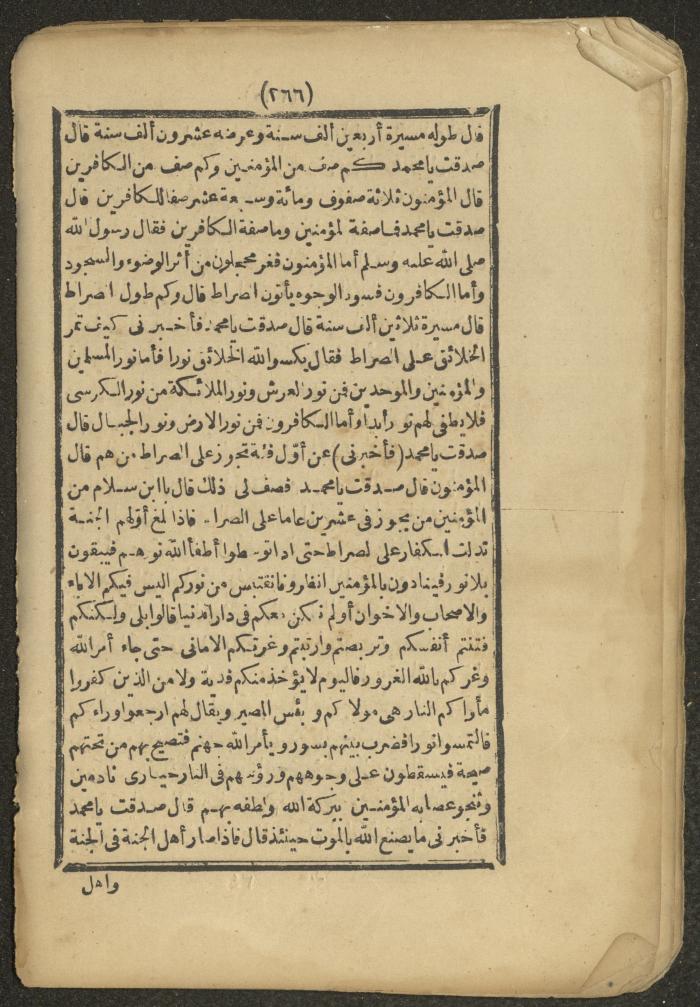 (٢٦٦)
قال طوله مسيرة أربعين ألف سنة وعرضه عشرون ألف سنة قال
صدقت يا محمد كم صف من المؤمنين وكم صف من الكافرين
قال المؤمنون ثلاثة صفوف ومائة وسبعة عشر صفا للكافرين قال
صدقت يا محمد فاصفة لمؤمنين وماصفة الكافرين فقال رسول الله
صلى الله عليه وسلم أما المؤمنون فغر محجلون من أثر الوضوء والسجود
وأما الكافرون فسود الوجوه يأتون الصراط قال وكم طول الصراط
قال مسيرة ثلاثين ألف سنة قال صدقت يا محمد فأخبرنى كيف تمر
الخلائق على الصراط فقال يكسو الله الخلائق نورا فأما نور المسلمين
والمؤمنين والموحدين فمن نور العرش ونور الملائكة من نور الكرسى
فلا يطفى لهم نور أبدا وأما الكافرون فمن نور الارض ونور الجبال قال
صدقت يا محمد (فأخبرنى) عن أوّل فئة تجوز على الصراط من هم قال
المؤمنون قال صدقت يا محمد فصف لى ذلك قال يا ابن سلام من
المؤمنين من يجوز فى عشرين عاما على الصراط فاذا بلغ أوّلهم الجنة
تدلت الكفار على لصراط حتى اذا توسطوا أطفأ الله نورهم فيبقون
بلا نور فينادون بالمؤمنين انظرونا نقتبس من نوركم اليس فيكم الاباء
والاصحاب والاخوان أولم نكن معكم فى دار الدنيا قالوا بلى ولكنكم
فتنتم أنفسكم وتربصتم وارتبتم وغرتكم الامانى حتى جاء أمر الله
وغركم بالله الغرور فاليوم لا يؤخذ منكم فدية ولا من الذين كفروا
مأواكم النار هى مولاكم وبئس المصير ويقال لهم ارجعوا وراءكم
فالتمسوا نورا فضرب بينهم بسور ويأمر الله جهنم فتصيح بهم من تحتهم
صيحة فيسقطون على وجوههم ورؤسهم فى النار حيارى نادمين
وتنجو عصابه المؤمنين ببركة الله ولطفه بهم قال صدقت يا محمد
فأخبرنى ما يصنع الله بالموت حينئذ قال فاذا صار أهل الجنة فى الجنة
واهل